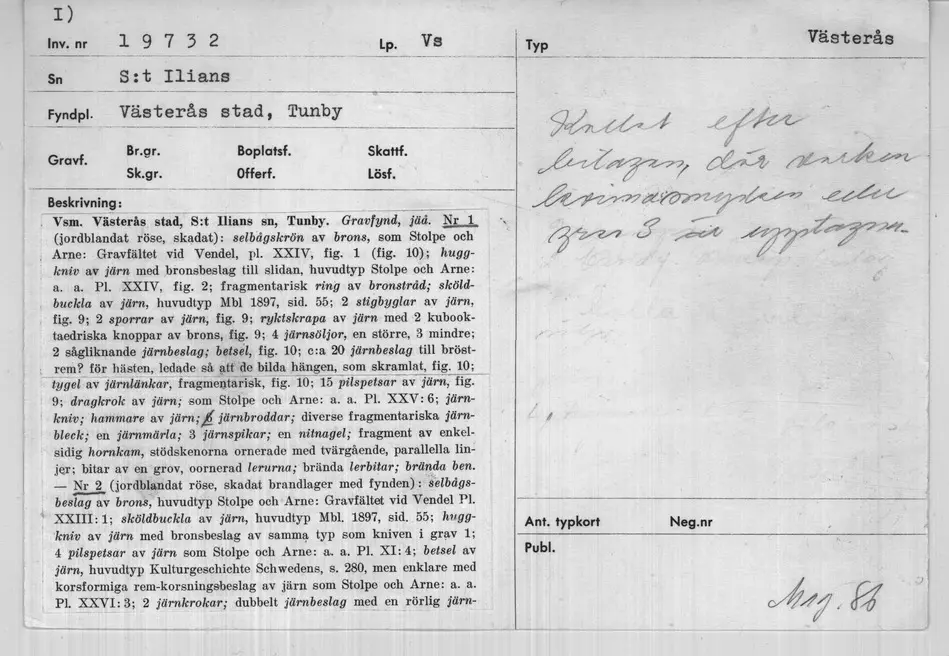 I)
Inv. nr 19732 Lp. Vs
Sn S:t Ilians
Fyndpl. Västerås stad, Tunby
Gravf. Br.gr. Boplatsf. Skattf.
Sk.gr. Offerf. Lösf.
Beskrivning:
Vsm. Västerås stad, S:t Ilians sn, Tunby. Gravfynd, jäå. Nr 1
(jordblandat röse, skadat): selbågskrön av brons, som Stolpe och
Arne: Gravfältet vid Vendel, pl. XXIV, fig. 1 (fig. 10); hugg-
kniv av järn med bronsbeslag till slidan, huvudtyp Stolpe och Arne:
a. a. Pl. XXIV, fig. 2; fragmentarisk ring av bronstråd; sköld-
buckla av järn, huvudtyp Mbl 1897, sid. 55; 2 stigbyglar av järn,
fig. 9; 2 sporrar av järn, fig. 9; ryktskrapa av järn med 2 kubook-
taedriska knoppar av brons, fig. 9; 4 järnsöljor, en större, 3 mindre;
2 sågliknande järnbeslag; betsel, fig. 10; c:a 20 järnbeslag till bröst-
rem? för hästen, ledade så att de bilda hängen, som skramlat, fig. 10;
tygel av järnlänkar, fragmentarisk, fig. 10; 15 pilspetsar av järn, fig.
9; dragkrok av järn; som Stolpe och Arne: a. a. Pl. XXV: 6; järn-
kniv; hammare av järn; 6 järnbroddar; diverse fragmentariska järn-
bleck; en järnmärla; 3 järnspikar; en nitnagel; fragment av enkel-
sidig hornkam, stödskenorna ornerade med tvärgående, parallella lin-
jer; bitar av en grov, oornerad lerurna; brända lerbitar; brända ben.
— Nr 2 (jordblandat röse, skadat brandlager med fynden): selbågs-
beslag av brons, huvudtyp Stolpe och Arne: Gravfältet vid Vendel Pl.
XXIII: 1; sköldbuckla av järn, huvudtyp Mbl. 1897, sid. 55; hugg-
kniv av järn med bronsbeslag av samma typ som kniven i grav 1;
4 pilspetsar av järn som Stolpe och Arne: a. a. Pl. XI: 4; betsel av
järn, huvudtyp Kulturgeschichte Schwedens, s. 280, men enklare med
korsformiga rem-korsningsbeslag av järn som Stolpe och Arne: a. a.
Pl. XXVI: 3; 2 järnkrokar; dubbelt järnbeslag med en rörlig järn-
Typ Västerås
efter
bilagan, där varken
eller
3 är upptagna.
Ant. typkort Neg.nr
Publ.
Mag. 86